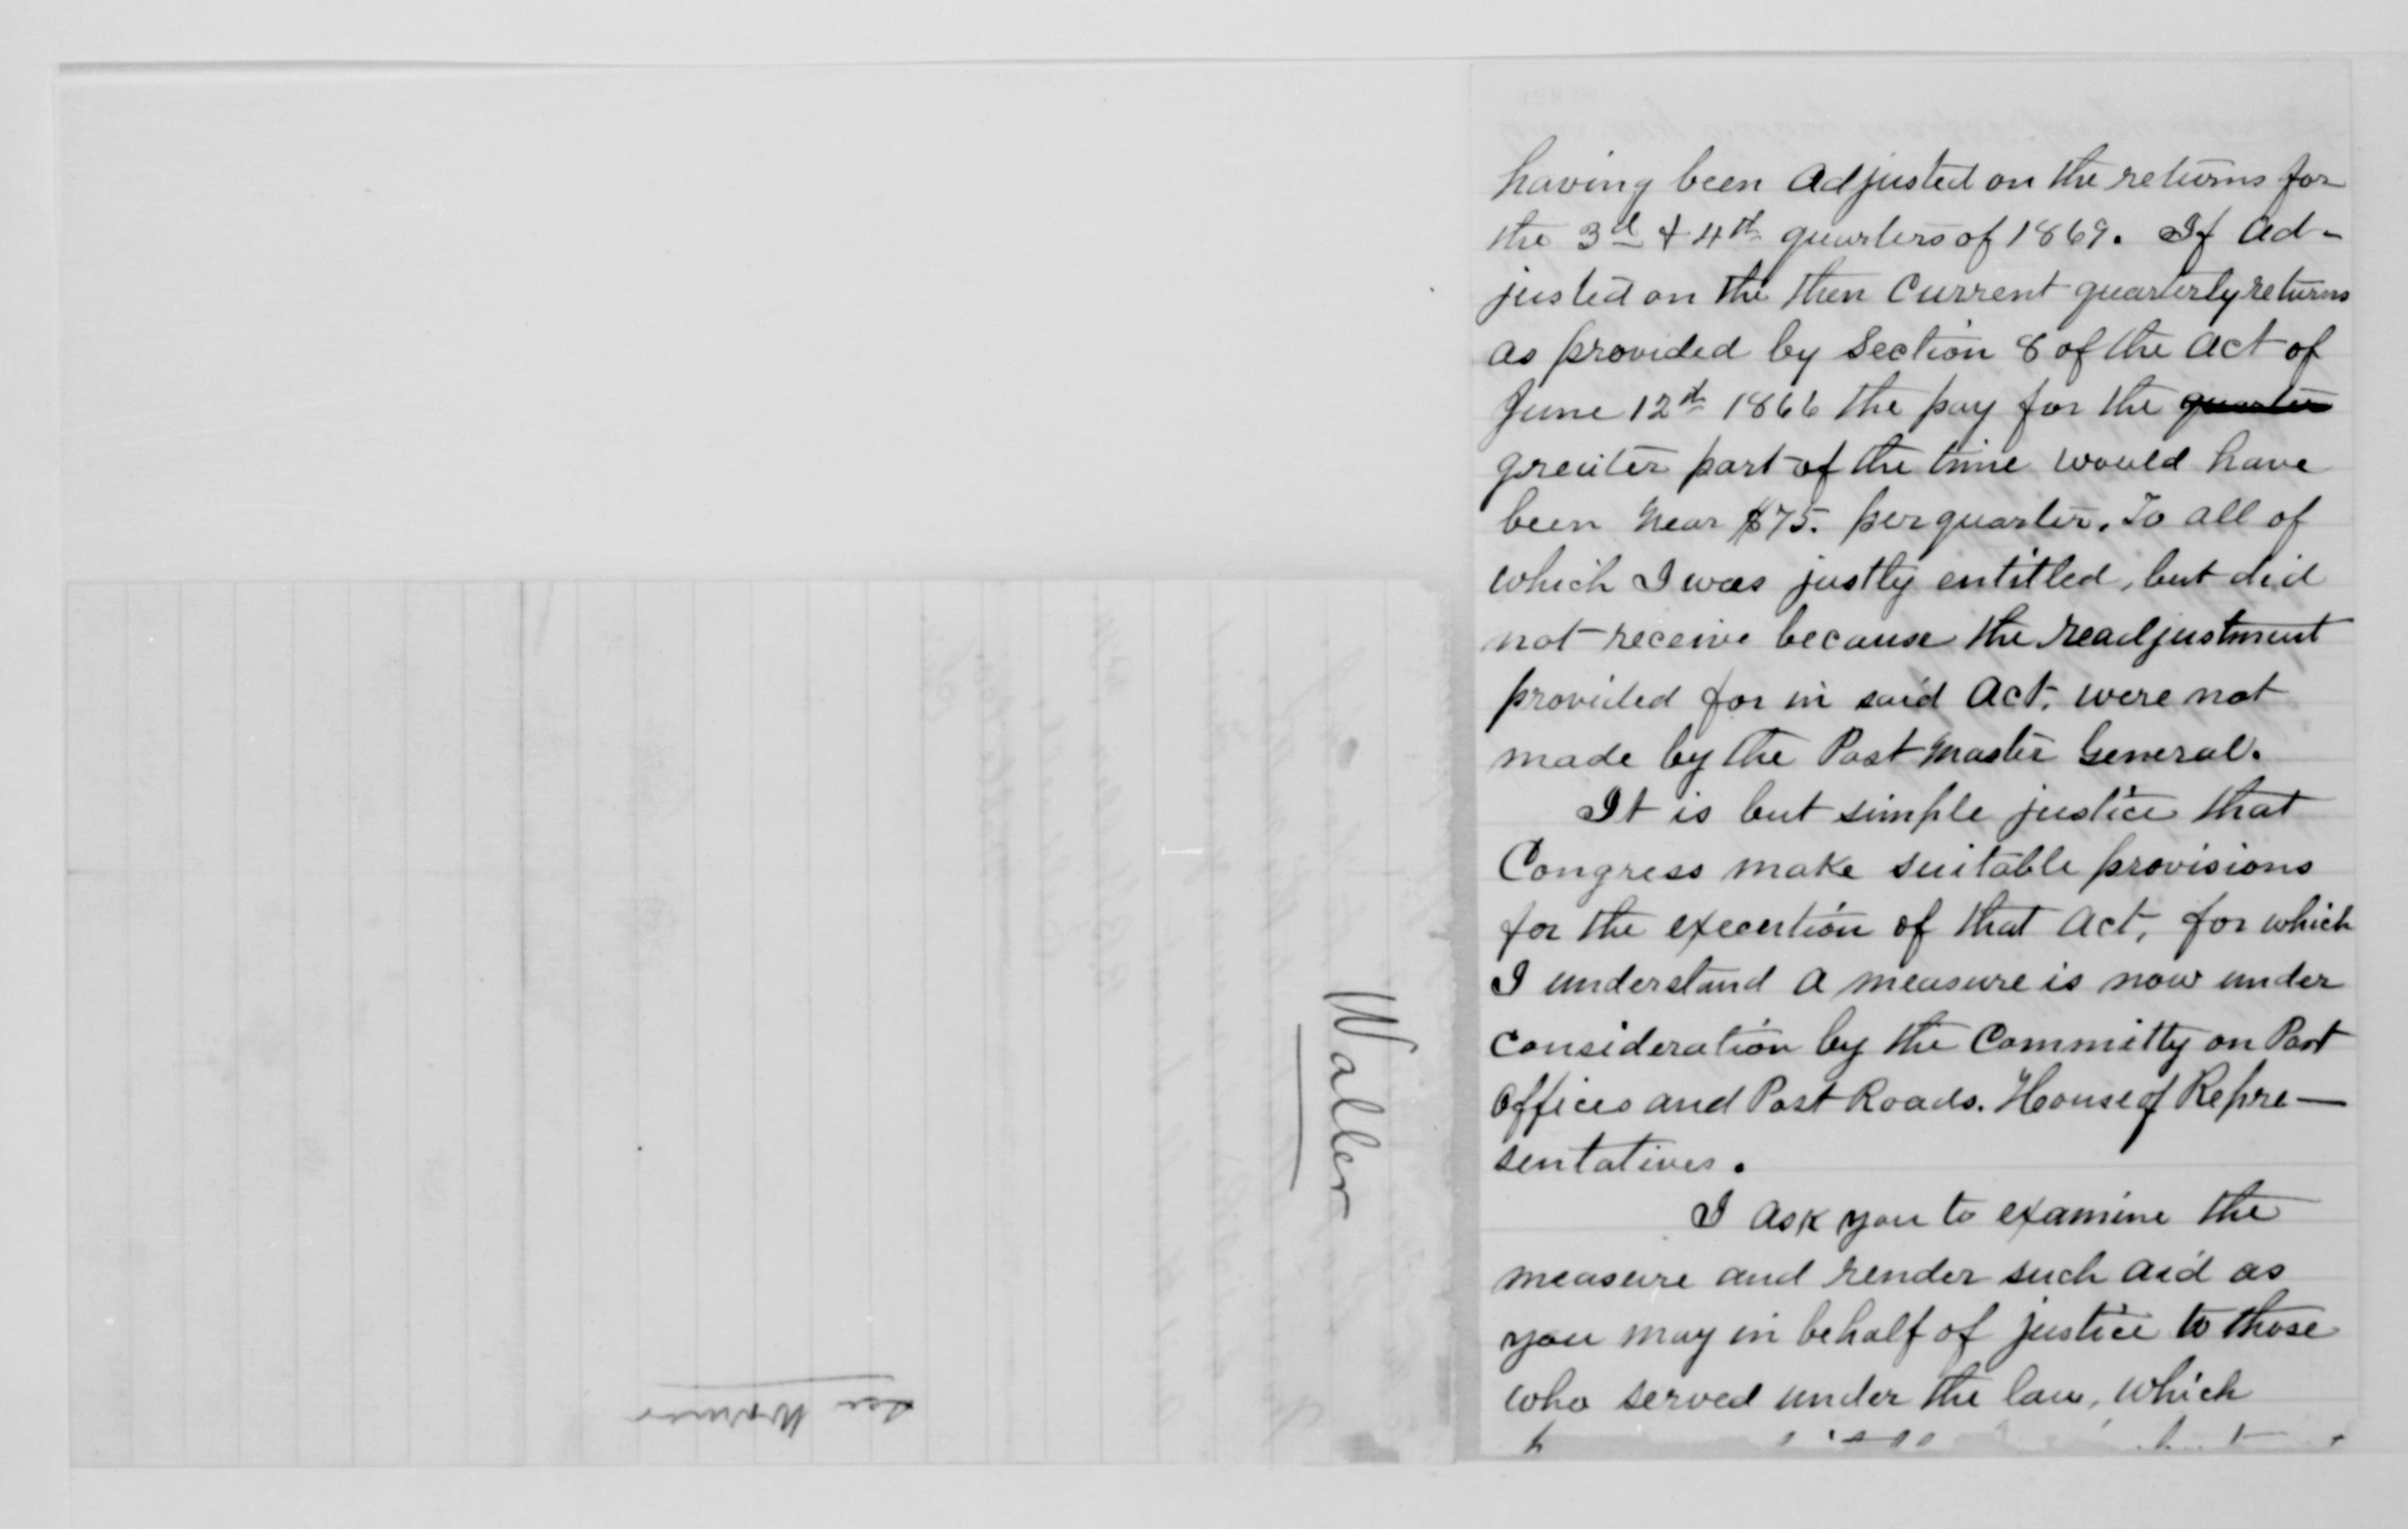 having been adjusted on the returns for
the 3d & 4th quarters of 1869. If ad-
justed on the then Current quarterly returns
as provided by Section 8 of the act of
June 12th 1866 the pay for the quarter
greater part of the time would have
been near $75. per quarter. To all of
which I was justly entitled, but did
not receive because the readjustment
provided for in said Act, were not
made by the Post Master General.
It is but simple justice that
Congress make suitable provisions
for the execution of that Act, for which
I understand a measure is now under
Consideration by the Committy on Post
Offices and Post Roads. House of Repre-
sentatives.
I ask you to examine the
measure and render such aid as
you may in behalf of justice to those
who served under the law, which
Waller